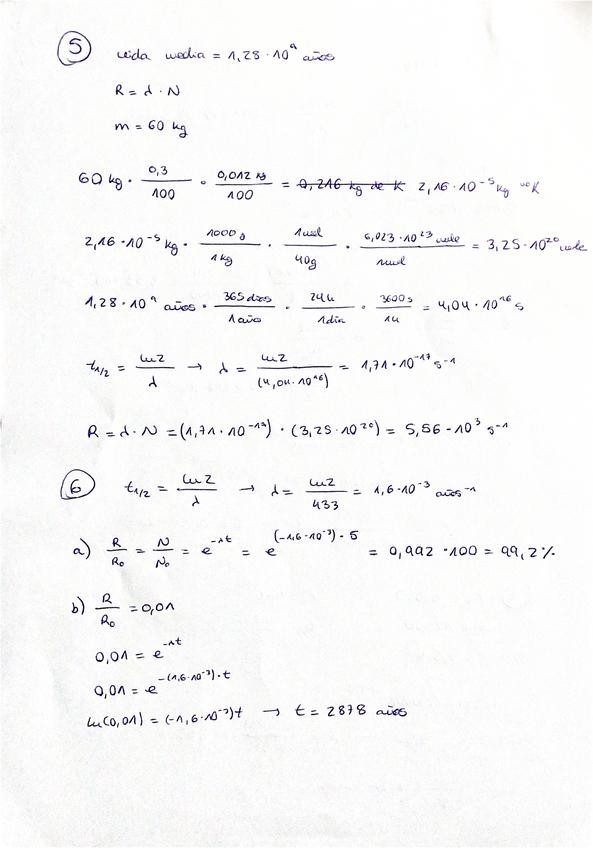 5 vida media = 1,28 · 10⁹ años
R = λ · N
m = 60 kg
60 kg · 0,3/100 · 0,012 kg/100 = 0,216 kg de K 2,16 · 10⁻⁵ kg ⁴⁰K
2,16 · 10⁻⁵ kg · 1000 g/1 kg · 1 mol/40g · 6,023 · 10²³ nucle/1 mol = 3,25 · 10²⁰ nucle
1,28 · 10⁹ años · 365 días/1 año · 24h/1 día · 3600 s/1h = 4,04 · 10¹⁶ s
t₁/₂ = ln2/λ → λ = ln2/(4,04 · 10¹⁶) = 1,71 · 10⁻¹⁷ s⁻¹
R = λ · N = (1,71 · 10⁻¹⁷) · (3,25 · 10²⁰) = 5,56 · 10³ s⁻¹
6 t₁/₂ = ln2/λ → λ = ln2/433 = 1,6 · 10⁻³ años⁻¹
a) R/R₀ = N/N₀ = e^(-λt) = e^((-1,6 · 10⁻³) · 5) = 0,992 · 100 = 99,2 %
b) R/R₀ = 0,01
0,01 = e^(-λt)
0,01 = e^(-(1,6 · 10⁻³) · t)
ln(0,01) = (-1,6 · 10⁻³)t → t = 2878 años